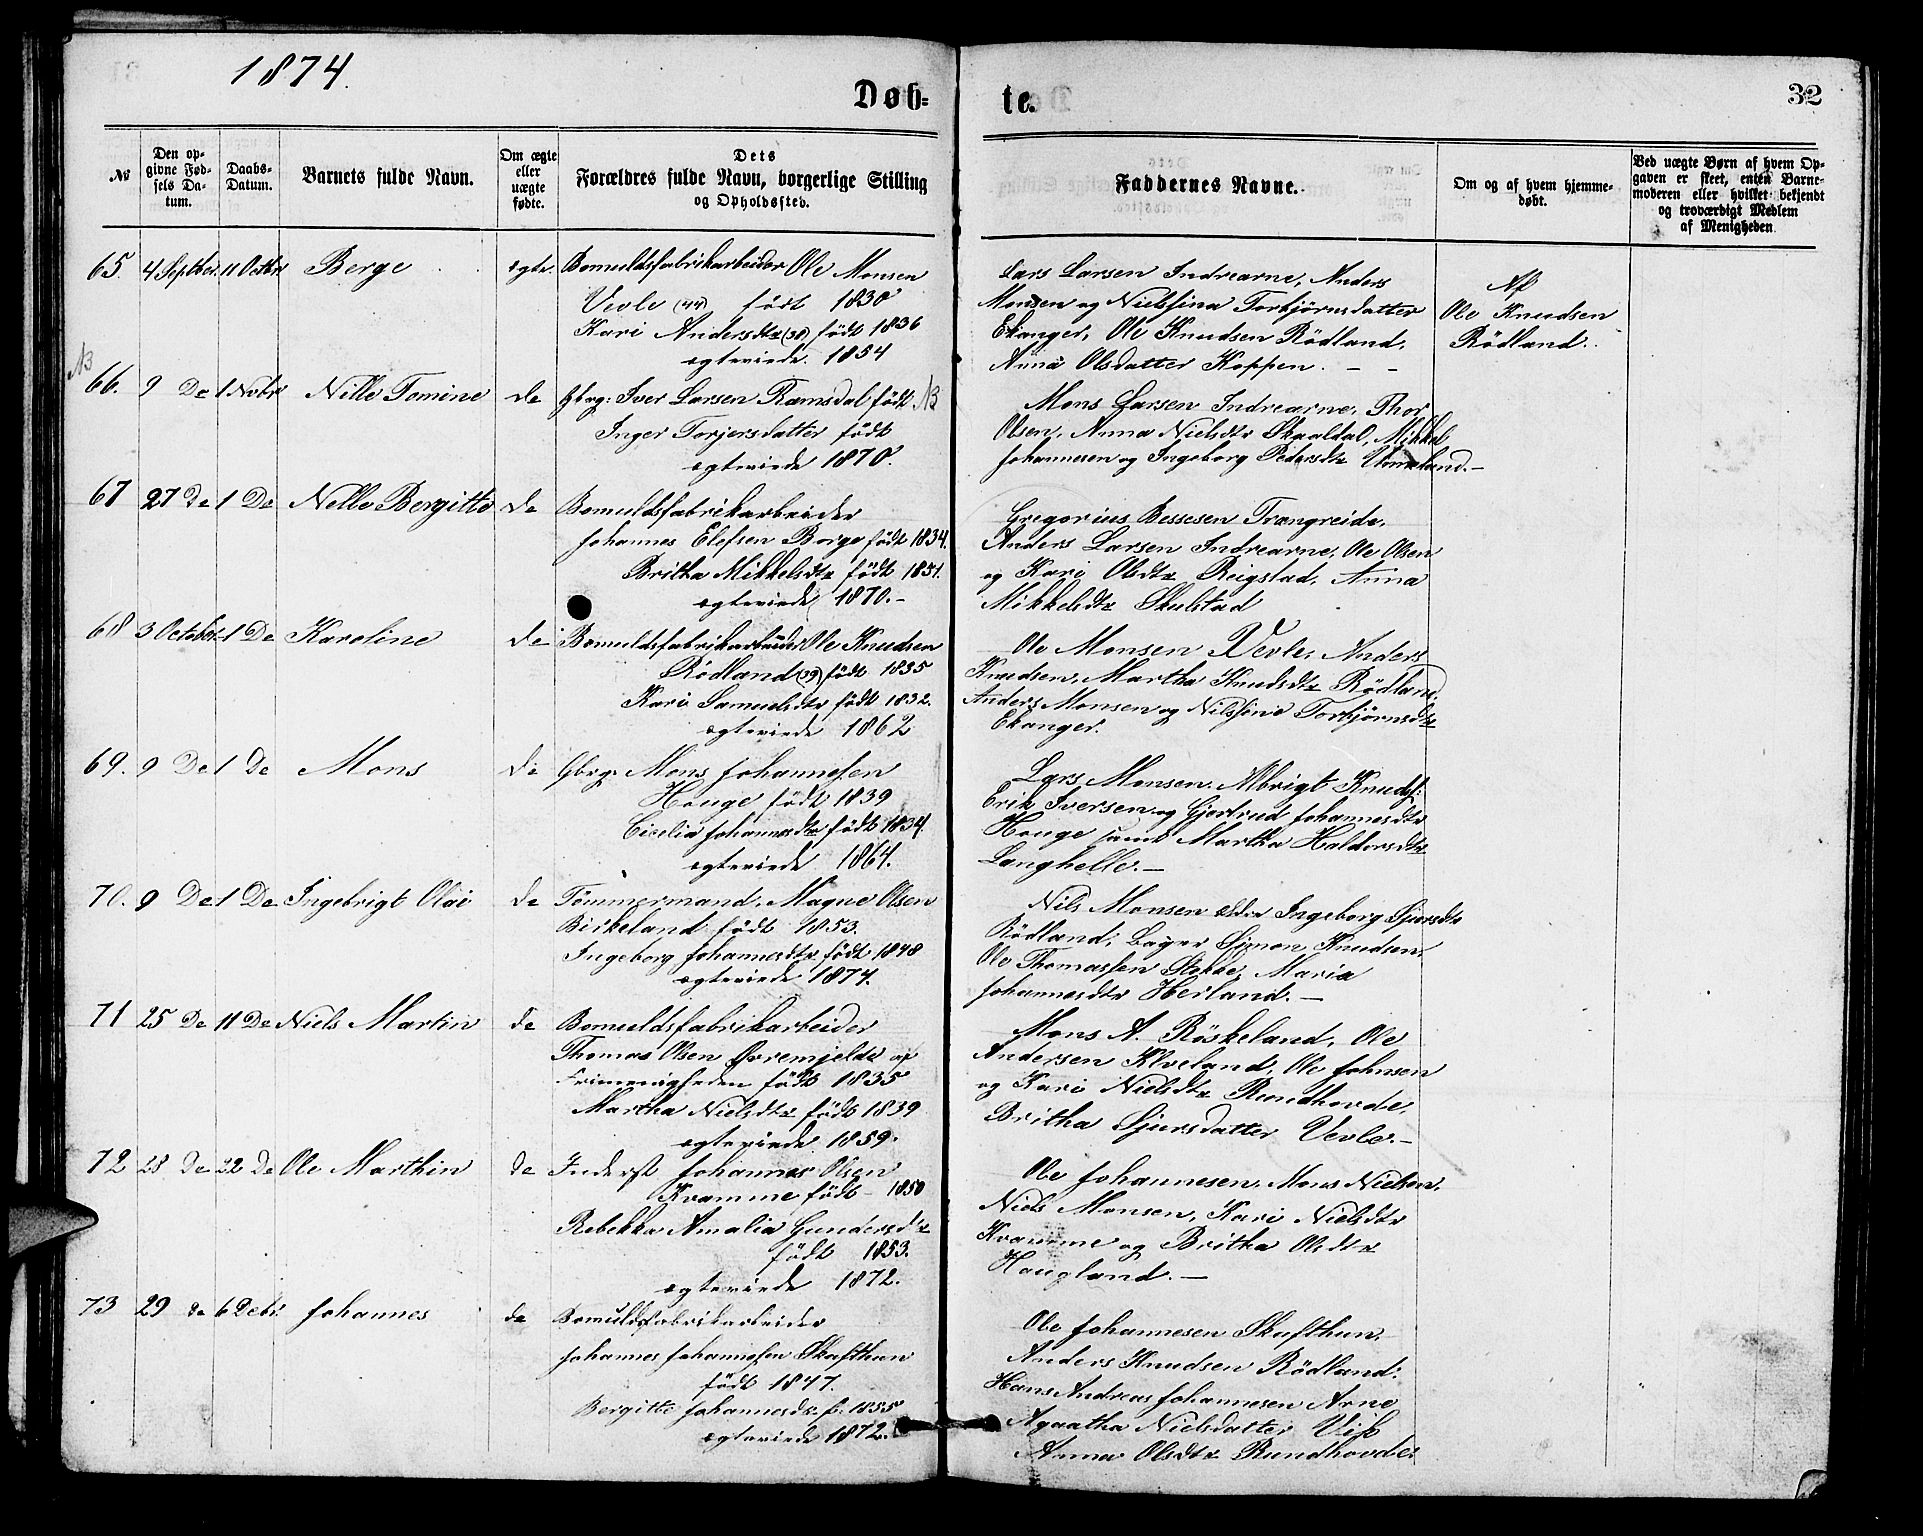 1874.
Døb=
te.
32
№
Den op-
givne Fød-
sels Da-
tum.
Daabs-
Datum.
Barnets fulde Navn.
Om ægte
eller
uægte
fødte.
Dets
Forældres fulde Navn, borgerlige Stilling
og Opholdssted.
Faddernes Navne.
Om og af hvem hjemme-
døbt.
Ved uægte Børn af hvem Op-
gaven er skeet, enten Barne-
moderen eller hvilket bekjendt
og troværdigt Medlem
af Menigheden.
65. 4 Septber. 11 Octbr Berge ægte. Bomuldsfabrikarbeider Ole Monsen
Vevle (44) født 1830
Kari Andersdtr (38) født 1836
ægteviede. 1854
Lars Larsen Indrearne, Anders
Monsen og Nielssina Torbjørnsdatter
Ekanger, Ole Knudsen Rödland,
Anna Olsdatter Koppen. – –
Af
Ole Knudsen
Rödland.
NB
66. 9 De 1 Novbr Nille Tomine de Gbrg: Iver Larsen Ramsdal født NB
Inger Torjersdatter født
ægteviede 1870.
Mons Larsen Indrearne, Thor
Olsen, Anna Nielsdtr Skaaldal, Mikkel
Johannesen og Ingeborg Pedersdtr Unneland. –
67 27 De 1 De Nelle Bergitte de Bomuldsfabrikarbeider
Johannes Elefsen Borge født 1834.
Britha Mikkelsdtr født 1831.
ægteviede 1870. –
Gregorius Bessesen Trængreide,
Anders Larsen Indrearne, Ole Olsen
og Kari Olsdtr Reigstad, Anna
Mikkelsdtr Skulstad
68 3 October 1 De Karoline de Bomuldsfabrikarbeider Ole Knudsen
Rödland (39) født 1835
Kari Samuelsdtr født 1832.
ægteviede 1862
Ole Monsen Vevle, Anders
Knudsen, Martha Knudsdtr Rödland.
Anders Monsen og Nilssine Torbjörnsdtr
Ekanger.
69. 9 De 1 De Mons de Gbrg: Mons Johannesen
Houge født 1839
Cicelia Johannesdtr født 1834.
ægteviede 1864.
Lars Monsen, Albrigt Knuds:
Erik Iversen og Gjertrud Johannesdtr
Houge samt Martha Haldorsdtr
Langhelle. –
70. 9 De 1 De Ingebrigt Olai de Tømmermand, Magne Olsen
Birkeland født 1853.
Ingeborg Johannesdtr født 1848
ægteviede 1874.
Nils Monsen Ingeborg Sjursdtr
Rödland, Simon Knudsen,
Ole Thomassen Maria
Johannesdtr Herland. –
71 25 De 11 De Niels Martin de Bomuldsfabrikarbeider
Thomas Olsen Øvremjelde af
Frimenigheden født 1835
Martha Nielsdtr født 1839
ægteviede 1859.
Mons A. Röskeland, Ole
Andersen Ole Johnsen
og Kari Nielsdtr Rundhovde,
Britha Sjursdatter Vevle. –
72 28 de 22 De Ole Marthin de Inderst Johannes Olsen
Kvamme født – 1850
Rebekka Amalia Gundersdtr
født 1853.
ægteviede 1872.
Ole Johannesen, Mons Nielsen,
Niels Monsen, Kari Nielsdtr
Kvamme og Britha Olsdtr
Hougland. –
73 29 de 6 Decbr. Johannes de Bomuldsfabrikarbeider
Johannes Johannesen Skafthun
født 1847.
Bergitte Johannesdr. f: 1855
ægteviede 1872.
Ole Johannesen Skafthun,
Anders Knudsen Rödland:
Hans Andreas Johannesen Arne
Agaatha Nielsdatter
Anna Olsdtr Rundhovde.